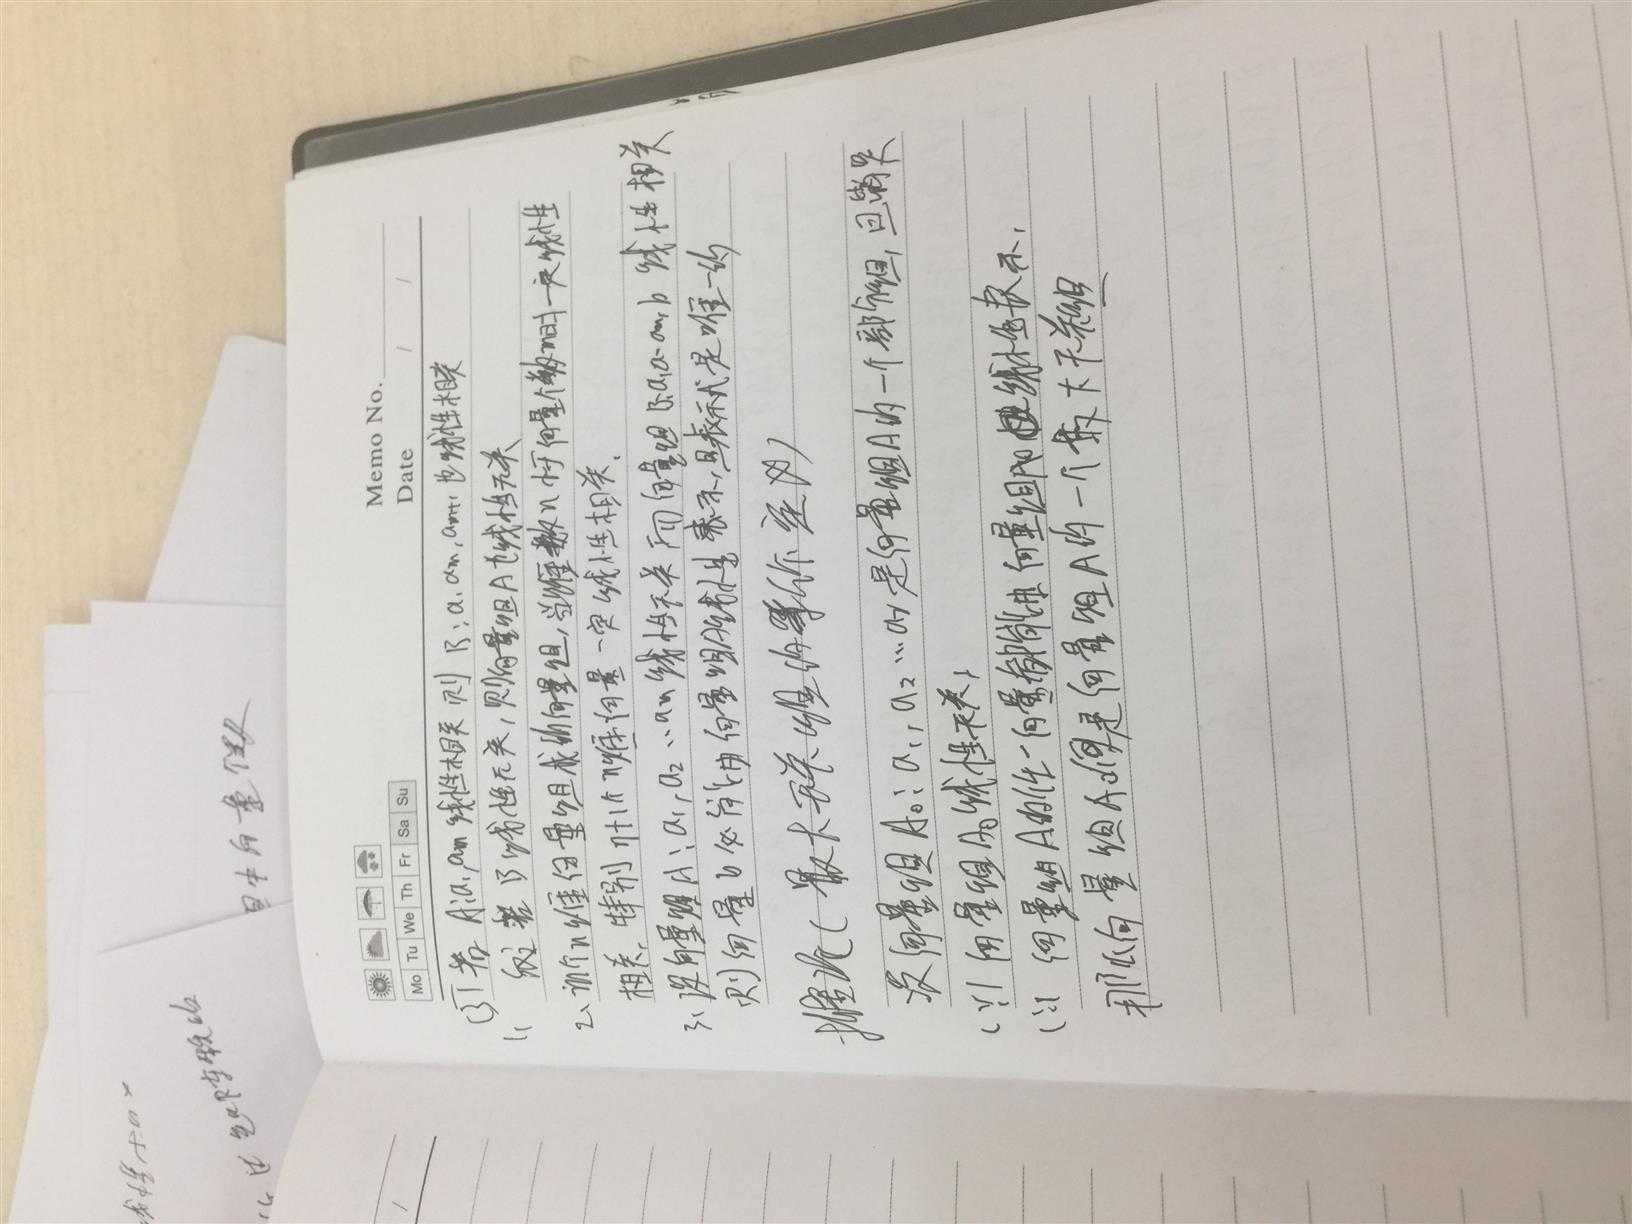 Memo No.
Mo Tu We Th Fr Sa Su
Date / /
(3) 若 A:a₁,am线性相关 则 B:a₁ am,am+1 也线性相关
1, 反之若 B 线性无关,则向量组A也线性无关
2, m个n维向量组成的向量组,当维数n小于向量个数m时一定线性
相关、特别 n+1个n维向量一定线性相关.
3, 设向量组A:a₁,a₂…am线性无关 而向量组B:a₁a…am,b 线性相关
则向量b必能由向量组A线性表示,且表示式是唯一的
推论(最大无关组的等价定义)
设向量组A₀:a₁,a₂…ar是向量组A的一个部分组,且满足
(i) 向量组A₀线性无关,
(ii) 向量组A的任一向量都能由向量组A₀线性表示.
那么向量组A₀便是向量组A的一个最大无关组
向量个数